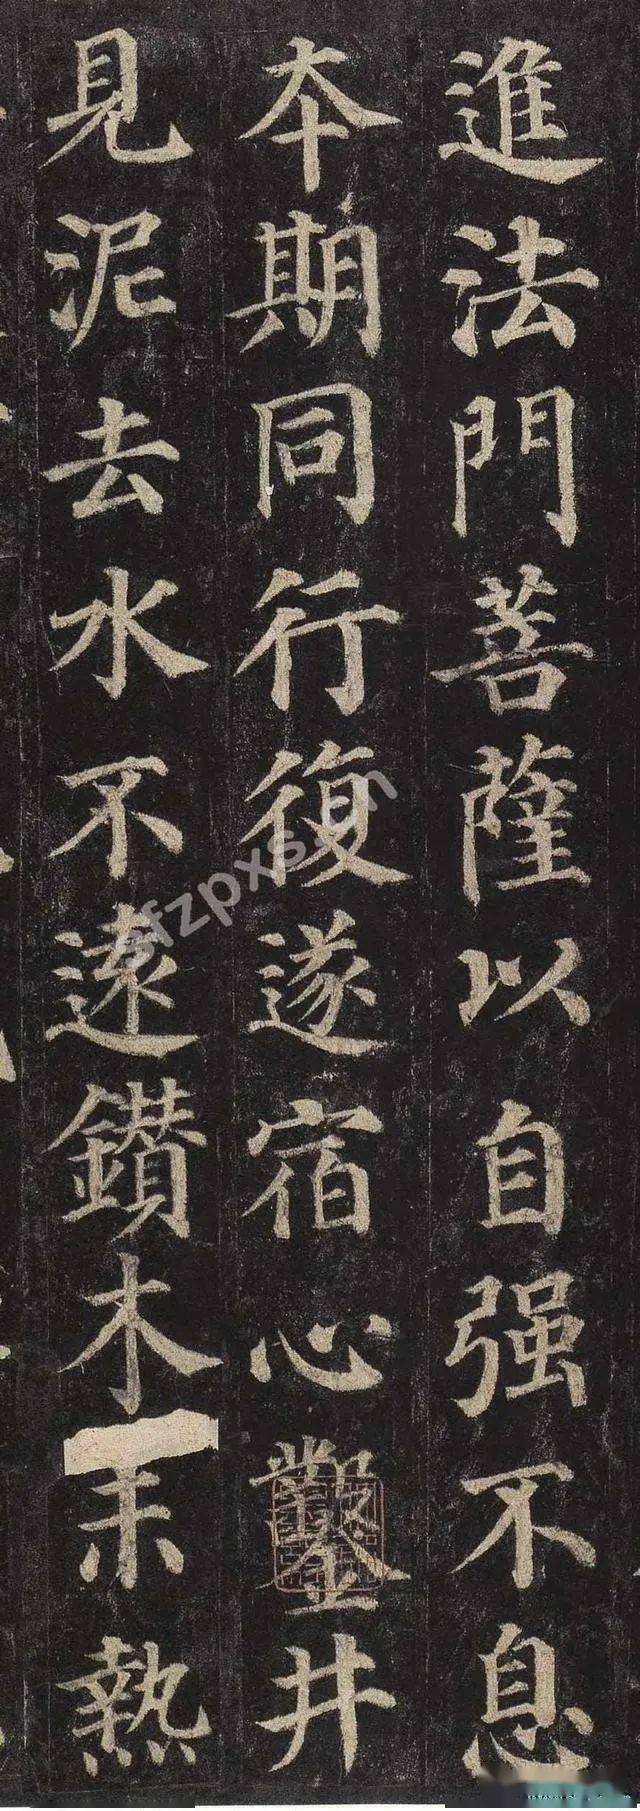 進法門菩薩以自强不息
本期同行復遂宿心鑿井
見泥去水不遠鑽木未熱
sfzpxs.cn